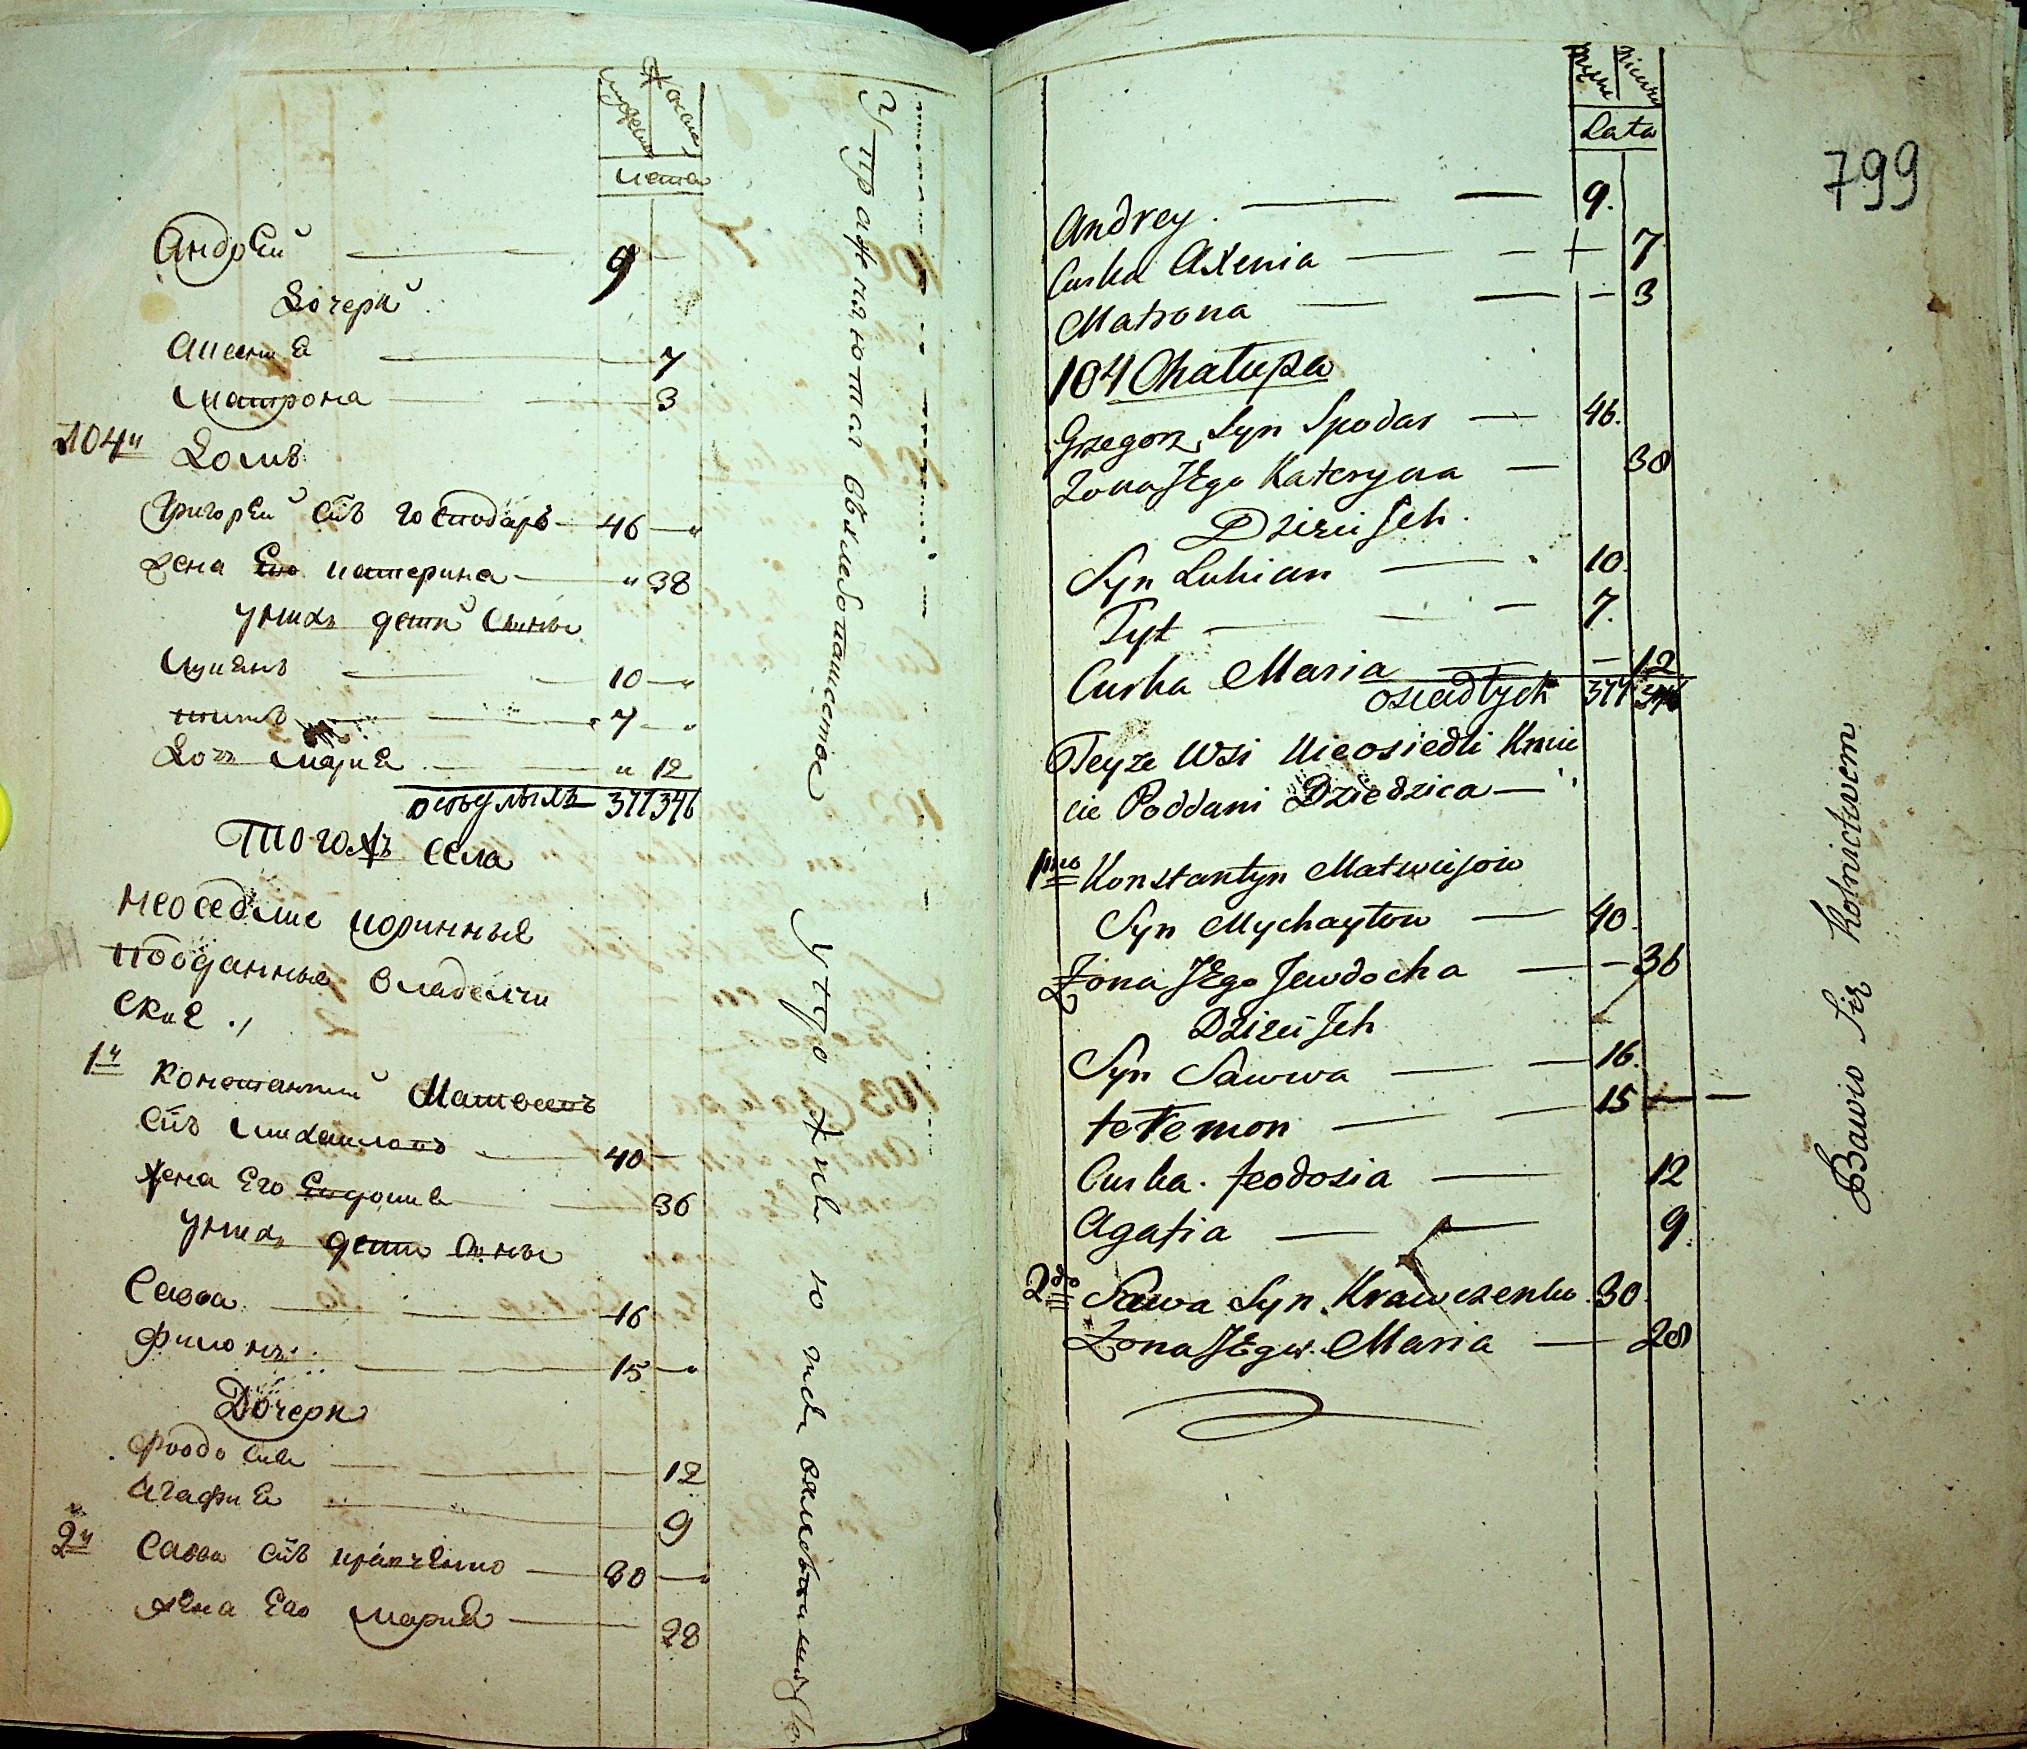 мужеска
женска
лета
Андрей 9
Дочери
Аксения 7
Матрона 3
104й Домъ
Григорей сынъ Господаръ 46
Жена Его Катерина 38
у нихъ дети Сыны
Лукиянъ 10
Титъ 7
Дочь Мария 12
оседлыхъ 377 346
Того жъ села
неоседлые коринные
подданные владелчи
ские
1й Константий Матвеевъ
сынъ Михайловъ 40
жена Его Евдокия 36
у нихъ дети Сыны
Савва 16
Филонъ 15
Дочери
Феодосия 12
Агафия 9
2й Савва сынъ Кравченко 30
жена Его Мария 28
Упражняются в хлебопашестве
Męskie
Lata
799
Andrey 9.
Curka Axenia 7
Matrona 3
104 Chałupa
Grzegorz Syn Spodar 46.
Zona JEgo Kateryna 38
Dzieci Jch.
Syn Lukian 10.
Tyt 7.
Curka Maria 12
osiadłych 377 346
Teyze Wsi Nieosiedli Kmie
cie Poddani Dziedzica
1mo Konstantyn Matwiejow
Syn Mychayłow 40.
Żona JEgo Jewdocha 36
Dzieci Jch
Syn Sawwa 16.
fełemon 15
Curka. feodosia 12
Agafia 9.
2do Sawa Syn Krawczenko 30.
Zona JEgo Maria 28
Bawio Się Rolnictwem